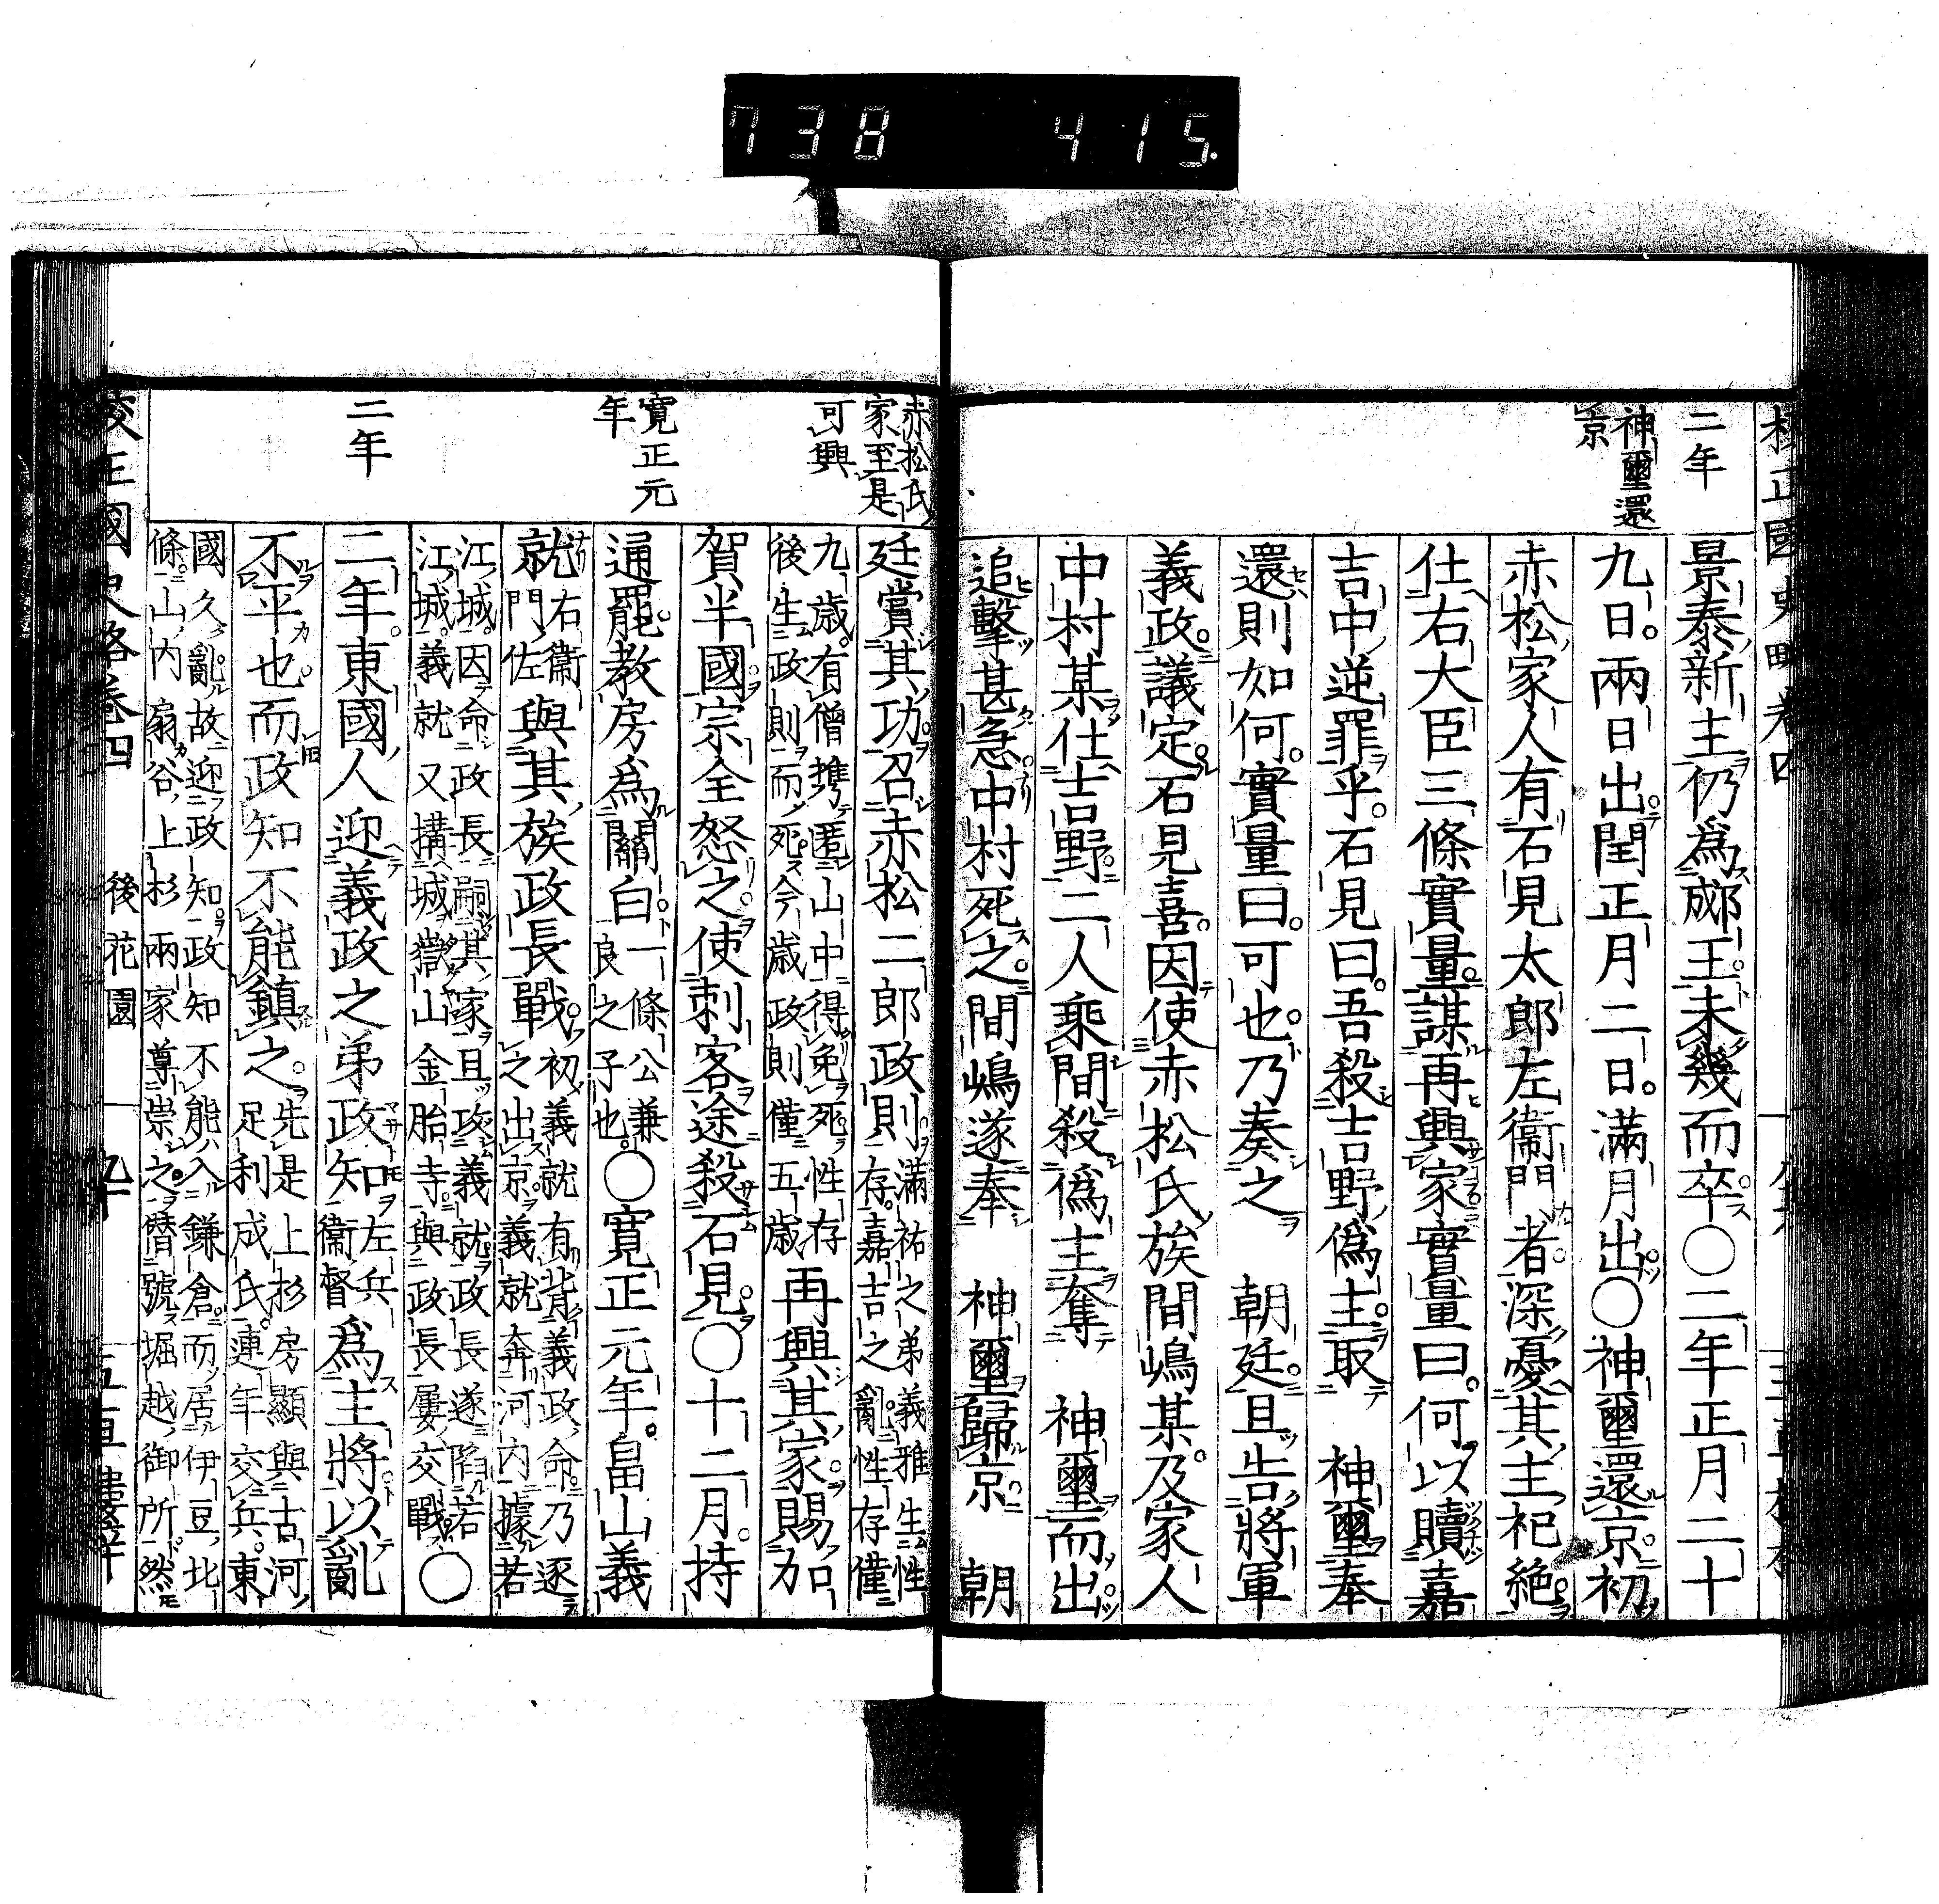 738 415.
二年
神璽還
京
景泰新主仍爲郕王未幾而卒○二年正月二十
九日兩日出閏正月二日滿月出○神璽還京初
赤松家人有石見太郎左衞門者深憂其主祀絶
仕右大臣三條實量謀再興家實量曰何以贖嘉
吉中逆罪乎石見曰吾殺吉野僞主取　神璽奉
還則如何實量曰可也乃奏之　朝廷且告將軍
義政議定石見喜因使赤松氏族間嶋某及家人
中村某仕吉野二人乘間殺僞主奪　神璽而出
追擊甚急中村死之間嶋遂奉　神璽歸京　朝
赤松氏
家至是
可興
寬正元
年
二年
廷賞其功召赤松二郎政則滿祐之弟義雅生性
存嘉吉之亂性存僅
九歳有僧攜匿山中得免死性存
後生政則而死今歳政則僅五歳再興其家賜加
賀半國宗全怒之使刺客途殺石見○十二月持
通罷教房爲關白一條公兼
良之子也○寬正元年畠山義
就右衞
門佐與其族政長戰初義就有背義政命乃逐
之出京義就奔河内據若
江城因命政長嗣其家且攻義就政長遂陷若
江城義就又搆城嶽山金胎寺與政長屢交戰○
二年東國人迎義政之弟政知左兵
衞督爲主將以亂
不平也而政知不能鎮之先是上杉房顯與古河
足利成氏連年交兵東
國久亂故迎政知政知不能入鎌倉而居伊豆北
條山内扇谷上杉兩家尊崇之僭號堀越御所然
後花園
九十